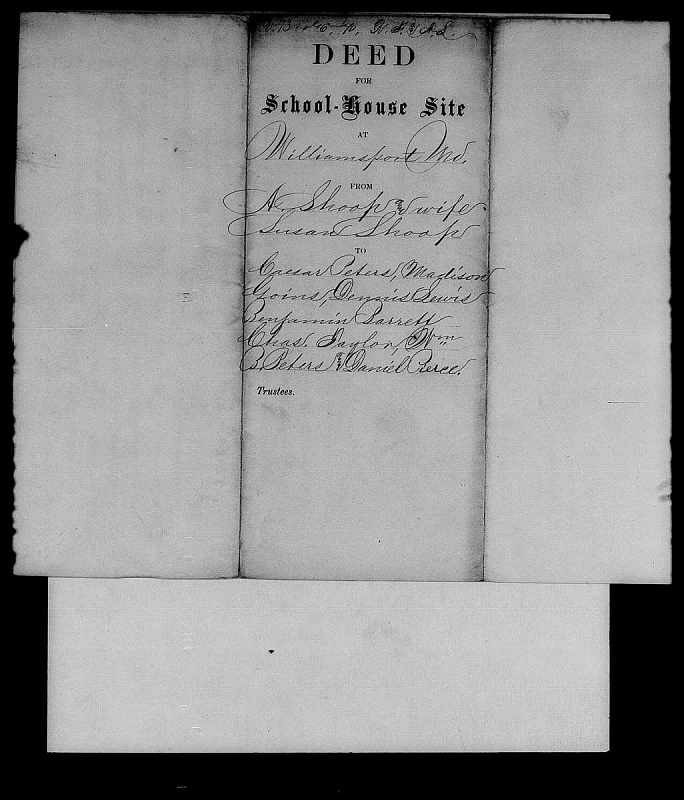 DEED
FOR
School-House Site
AT
Williamsport Md.
FROM
A. Shoop and wife
Susan Shoop
TO
Caesar Peters, Madison
Goins, Dennis Lewis
Benjamin Barrett
Chas. Taylor, Wm
B. Peters & Daniel Pierce.
Trustees.